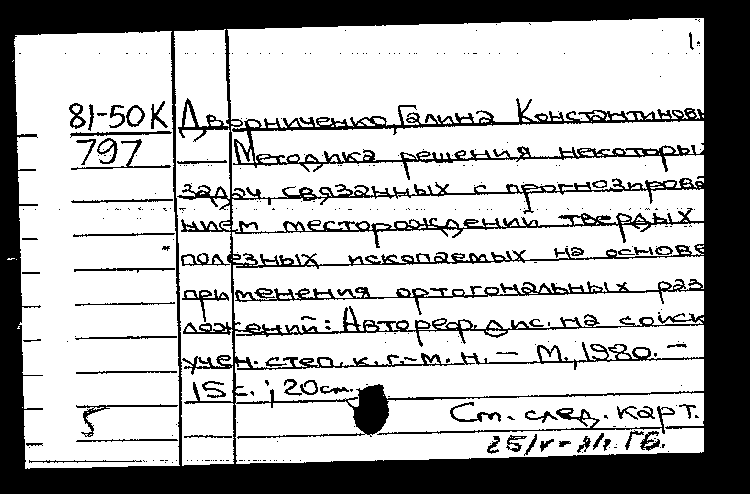 1.
81-50К Дворниченко, Галина Константиновн
797 Методика решения некоторы
задач, связанных с прогнозирова
нием месторождений твердых
полезных ископаемых на основе
применения ортогональных раз
ложений: Автореф. дис. на соиск
учен. степ. к. г.-м. н. – М., 1980. –
15 с.; 20 см.
5 См. след. карт.
ГБ.